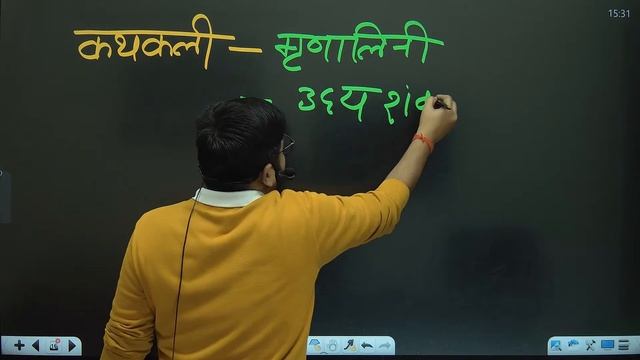 15:31
कथकली - मृणालिनी
- उदय शं